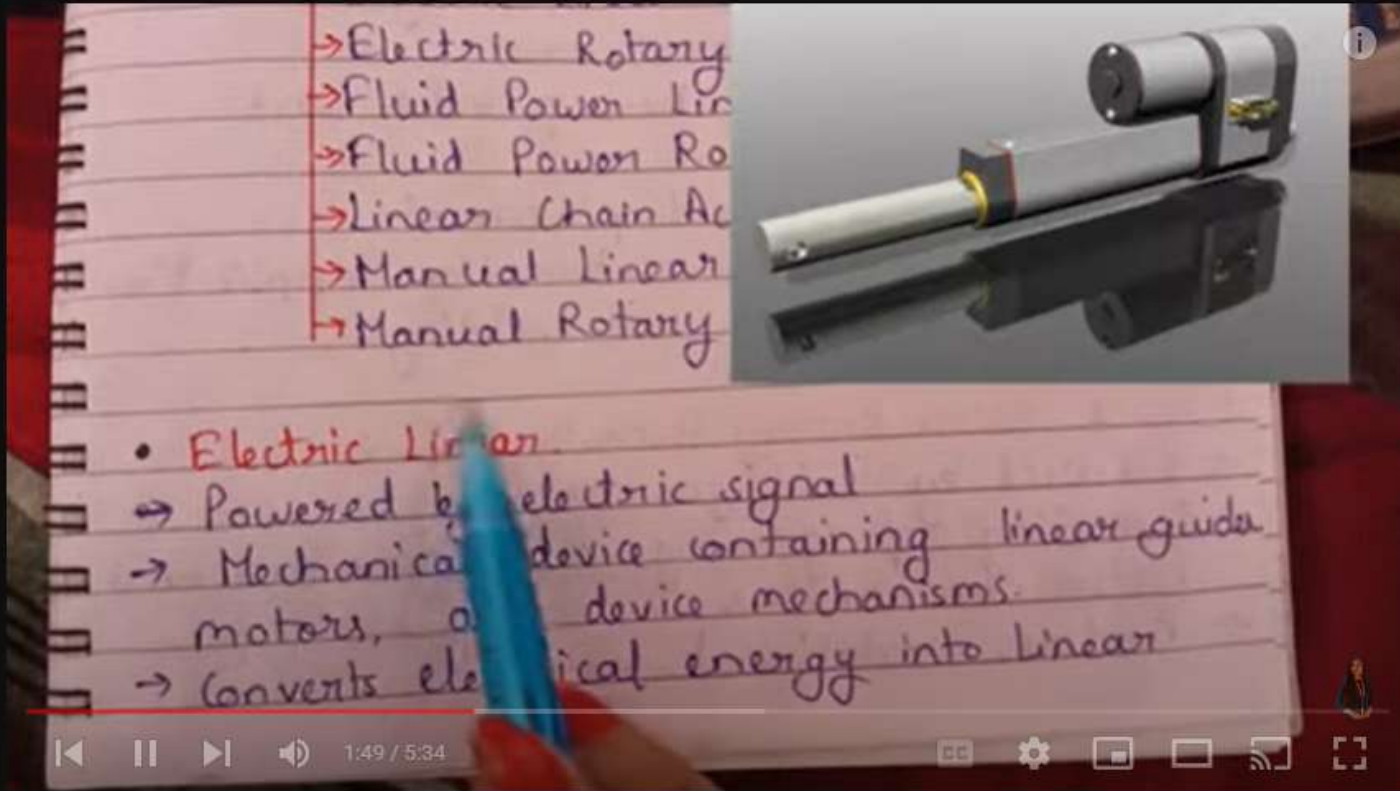 →Electric Rotary
→Fluid Power Lin
→Fluid Power Ro
→Linear Chain Ac
→Manual Linear
→Manual Rotary
• Electric Linear
→ Powered by electric signal
→ Mechanical device containing linear guides
motors, device mechanisms.
→ Converts electrical energy into Linear
1:49 / 5:34
CC